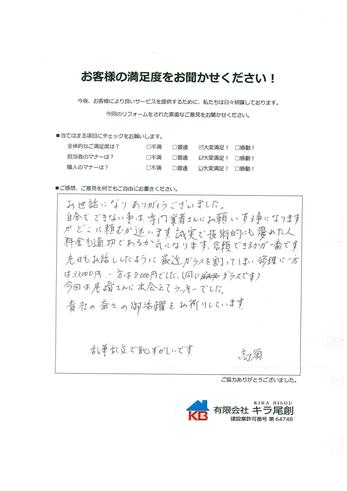 お客様の満足度をお聞かせください！
今後、お客様により良いサービスを提供するために、私たちは日々研鑽しております。
今回のリフォームをされた素直なご意見をお聞かせください。
■当てはまる項目にチェックをお願いします。
全体的なご満足度は？ □不満 □普通 ☑大変満足！ □感動！
担当者のマナーは？ □不満 □普通 ☑大変満足！ □感動！
職人のマナーは？ □不満 □普通 ☑大変満足！ □感動！
■ご感想、ご意見を何でもご自由にお書きください。
お世話になりありがとうございました。
自分でできない事は専門業者さんにお願いする事になります
がどこに頼むか迷います誠実で技術的にも優れた人
料金も適切であるか気になります。信頼できるかが一番です
先日もお話ししたように最近ガラスを割ってしまい修理に一方
は33000円、一方は8000円でした。(同じガラスです)
今回は尾崎さんに出会えてラッキーでした。
貴社の益々の御活躍をお祈りしています
乱筆乱文で恥ずかしいです
高須
ご協力ありがとうございました。
KIRA BISOU
KB 有限会社 キラ尾創
建設業許可番号 第64748